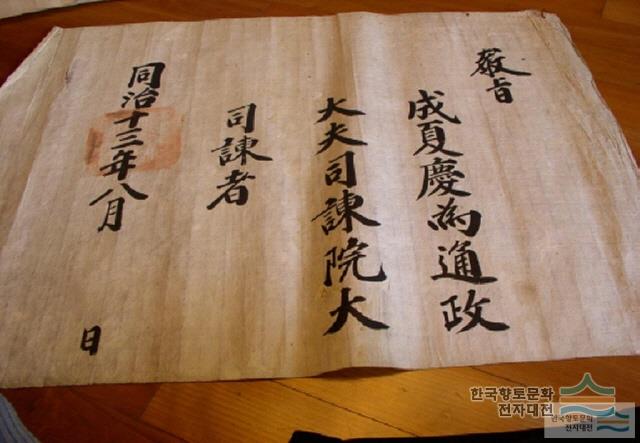 敎旨
成夏慶爲通政
大夫司諫院大
司諫者
同治十三年八月
日
한국향토문화
전자대전
한국향토문화
전자대전